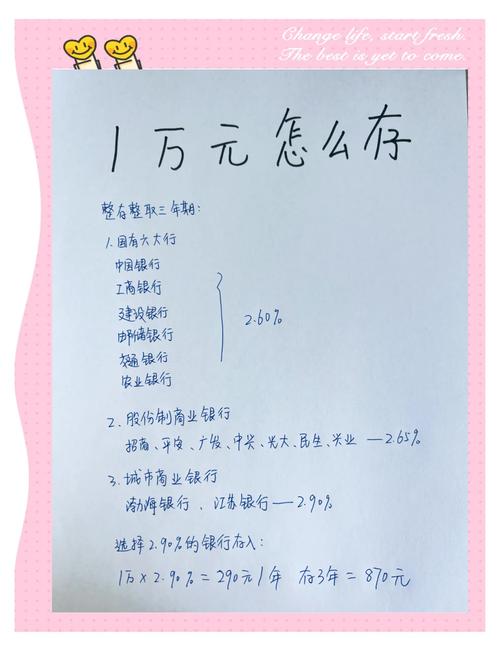 Change life, start fresh.
The best is yet to come.
1万元怎么存
整存整取三年期:
1.国有六大行
中国银行
工商银行
建设银行
邮储银行
交通银行
农业银行
2.60%
2.股份制商业银行
招商、平安、广发、中兴、光大、民生、兴业 — 2.65%
3.城市商业银行
渤海银行、江苏银行 — 2.90%
选择2.90%的银行存入:
1万×2.90%=290元/年 存3年=870元